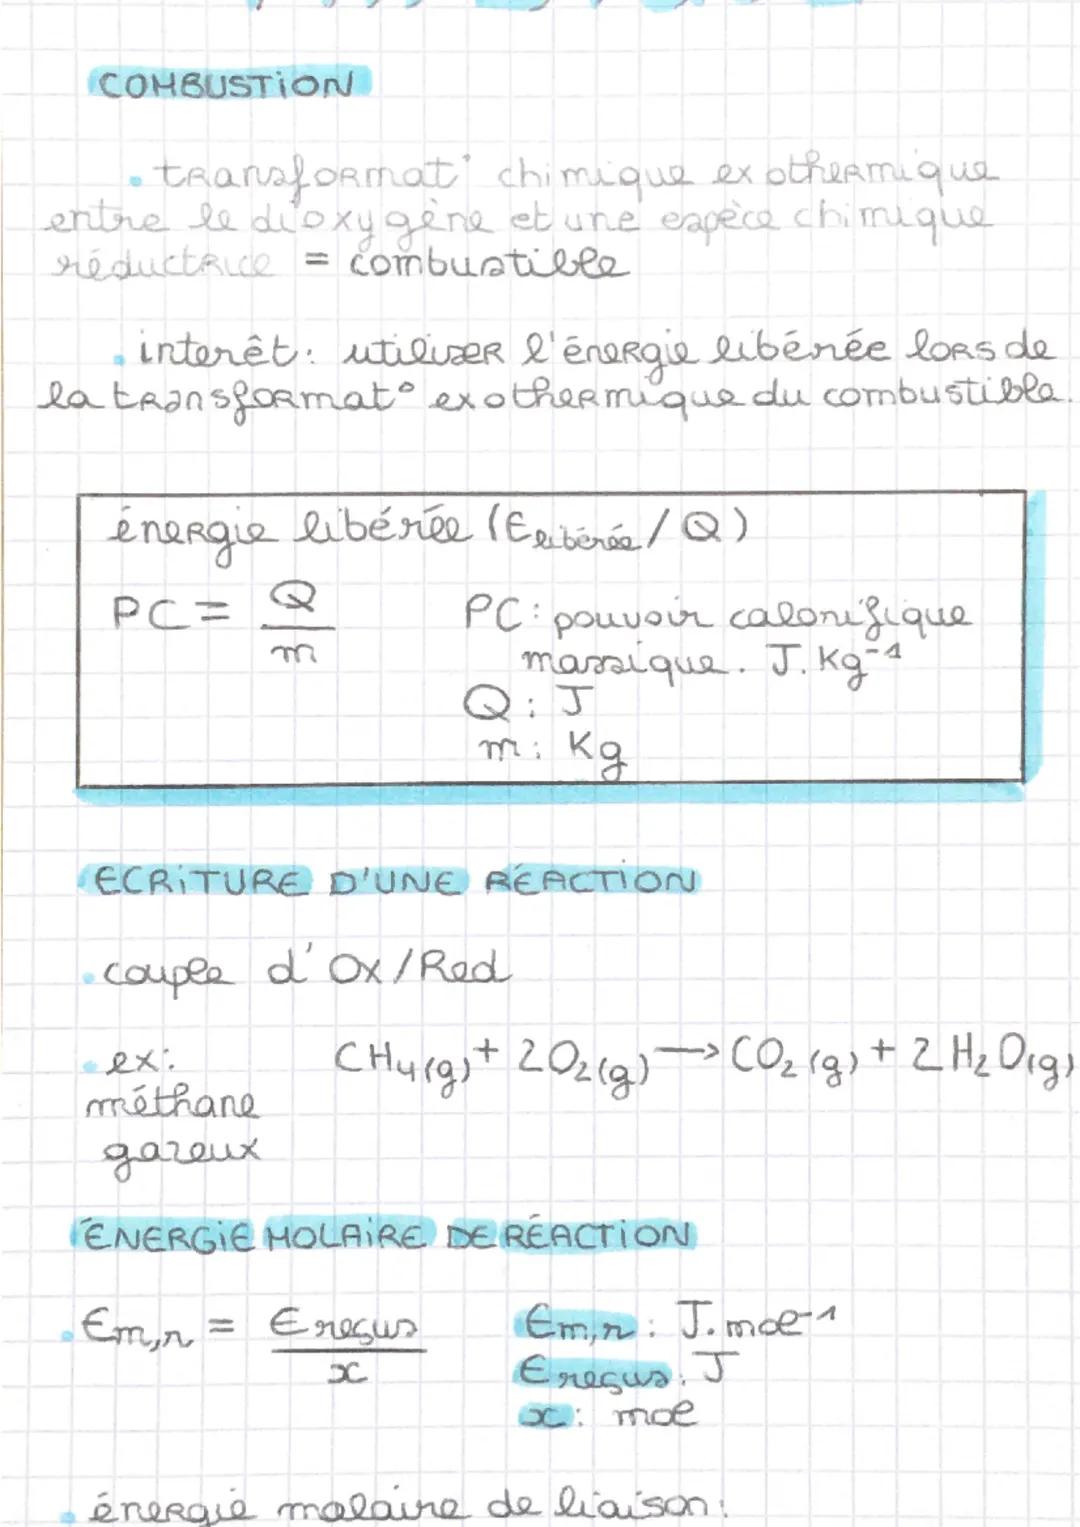 COMBUSTION
• transformat° chimique exothermique
entre le dioxygène et une espèce chimique
réductrice = combustible
• interêt: utiliser l'énergie libérée lors de
la transformat° exothermique du combustible.
énergie libérée (Elibérée / Q)
PC = Q/m PC: pouvoir calorifique
massique. J.Kg⁻¹
Q: J
m: Kg
ECRITURE D'UNE RÉACTION
• couple d'Ox/Red
• ex: CH₄(g) + 2O₂(g) → CO₂(g) + 2H₂O(g)
méthane
gazeux
ÉNERGIE MOLAIRE DE RÉACTION
• Em,r = Ereçus/x Em,r: J.mol⁻¹
Ereçus: J
x: mol
• énergie molaire de liaison: